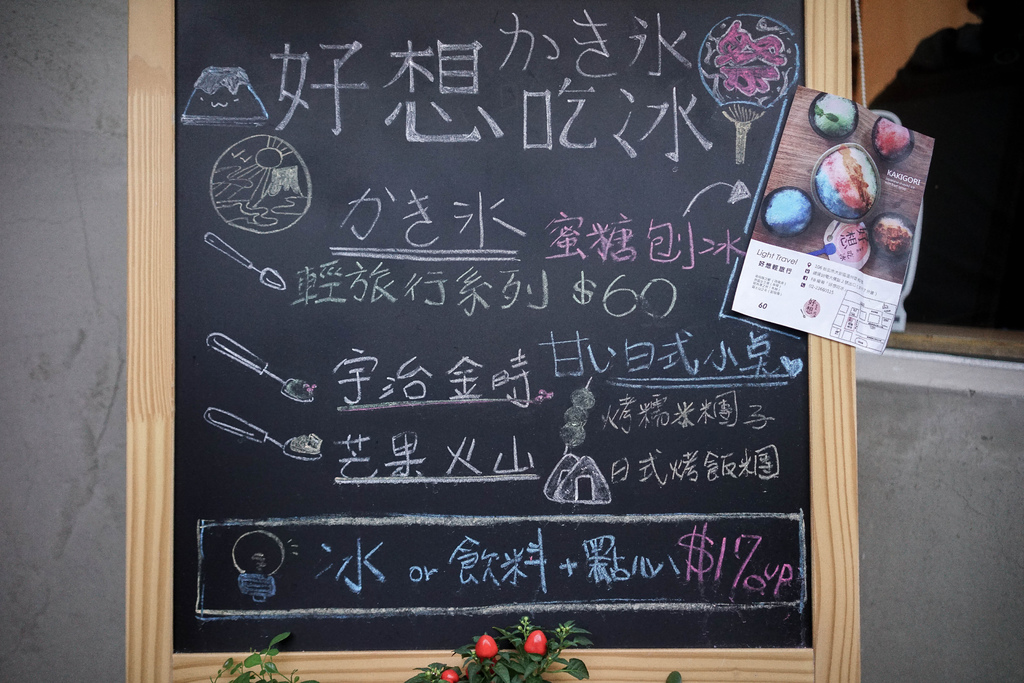 かき氷
好想吃冰
祭
かき氷
蜜糖刨冰
輕旅行系列 $60
宇治金時
甘い日式小桌
烤糯米糰子
芒果火山
日式烤飯糰
冰 or 飲料 + 點心 $170up
KAKIGORI
Light Travel
好想輕旅行
60